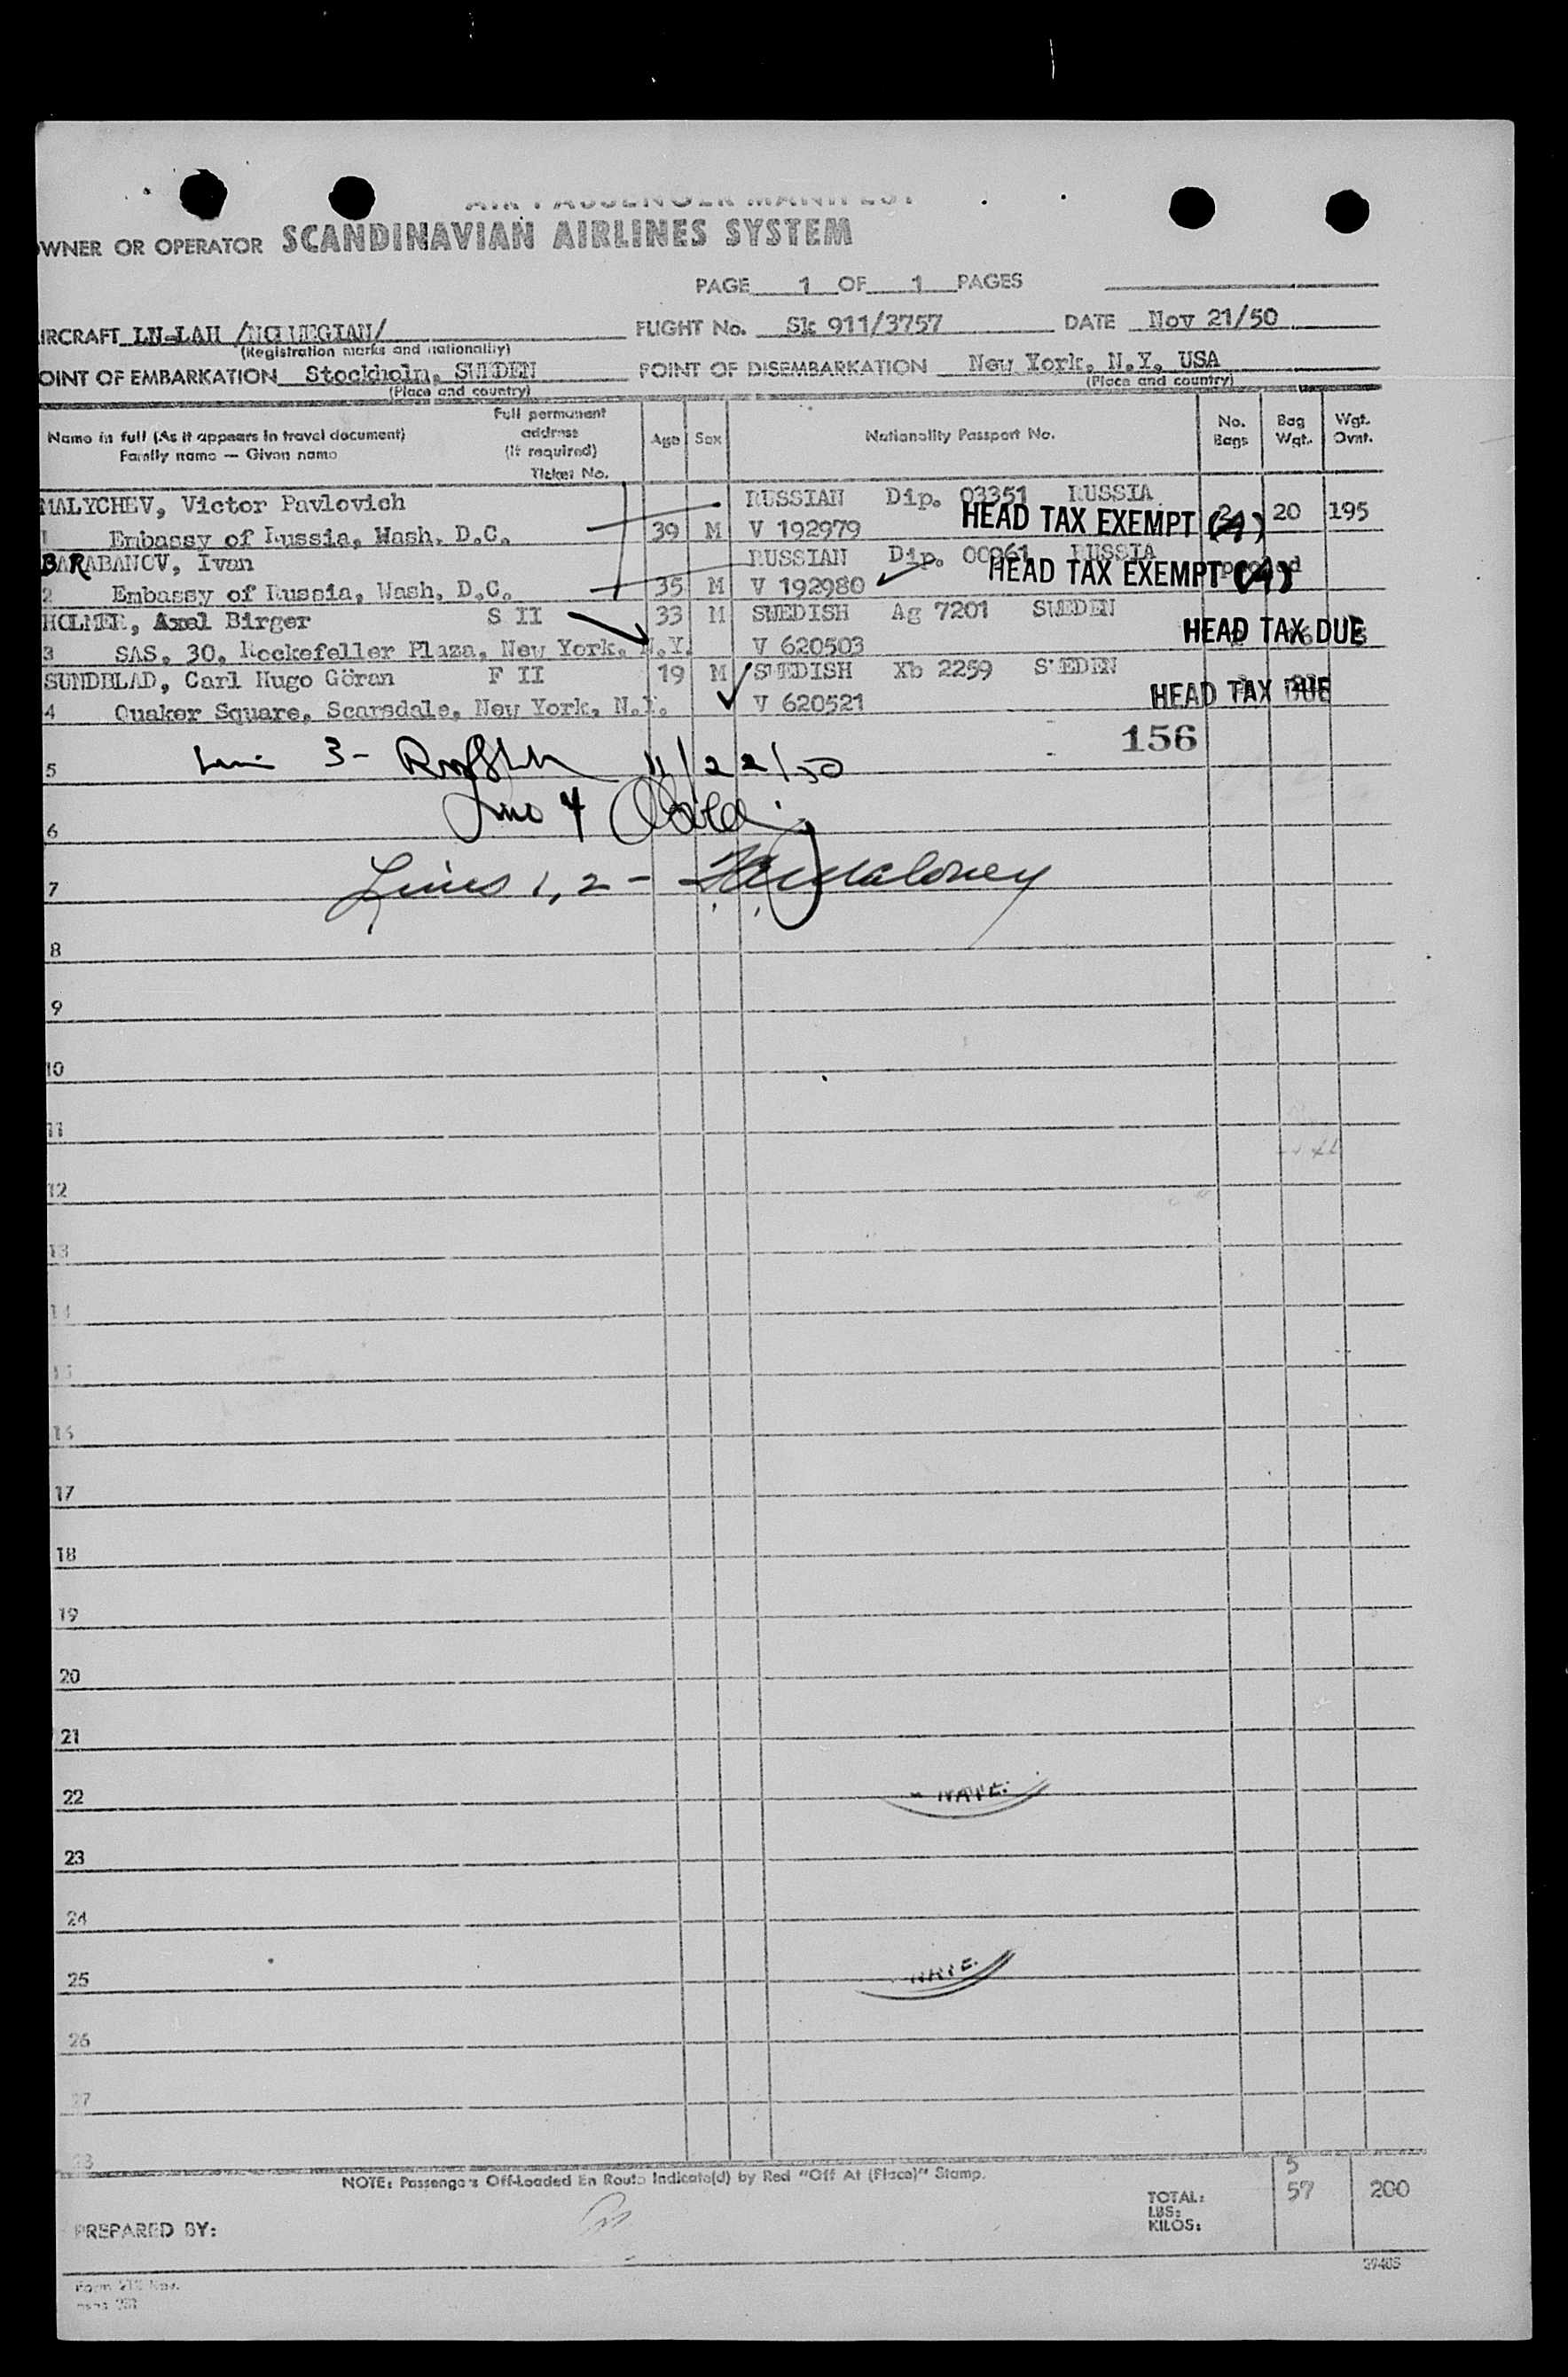 AIR PASSENGER MANIFEST
OWNER OR OPERATOR SCANDINAVIAN AIRLINES SYSTEM
PAGE 1 OF 1 PAGES
IRCRAFT LN-LAH /NORWEGIAN/ FLIGHT No. Sk 911/3757 DATE Nov 21/50
(Registration marks and nationality)
OINT OF EMBARKATION Stockholm, SWEDEN POINT OF DISEMBARKATION New York, N.Y. USA
(Place and country) (Place and country)
Name in full (As it appears in travel document)
Family name — Given name
Full permanent
address
(If required)
Ticket No.
Age Sex Nationality Passport No. No. Bags Bag Wgt. Wgt. Ovnt.
MALYCHEV, Victor Pavlovich RUSSIAN Dip. 03351 RUSSIA
1 Embassy of Russia, Wash. D.C. 39 M V 192979 HEAD TAX EXEMPT (4) 2 20 195
BARABANOV, Ivan RUSSIAN Dip. 00961 RUSSIA
2 Embassy of Russia, Wash, D.C. 35 M V 192980 HEAD TAX EXEMPT (4)
HOLMER, Axel Birger S II 33 M SWEDISH Ag 7201 SWEDEN
3 SAS, 30, Rockefeller Plaza, New York, N.Y. V 620503 HEAD TAX DUE
SUNDBLAD, Carl Hugo Göran F II 19 M SWEDISH Xb 2259 SWEDEN
4 Quaker Square, Scarsdale, New York, N.Y. V 620521 HEAD TAX DUE
156
5 3- 11/22/50
6 4
7 Lines 1, 2 - Maloney
8
9
10
11
12
13
14
15
16
17
18
19
20
21
22
23
24
25
26
27
28
NOTE: Passengers Off-Loaded En Route Indicate(d) by Red "Off At (Place)" Stamp.
5
TOTAL: 57 200
LBS:
KILOS:
PREPARED BY:
29405